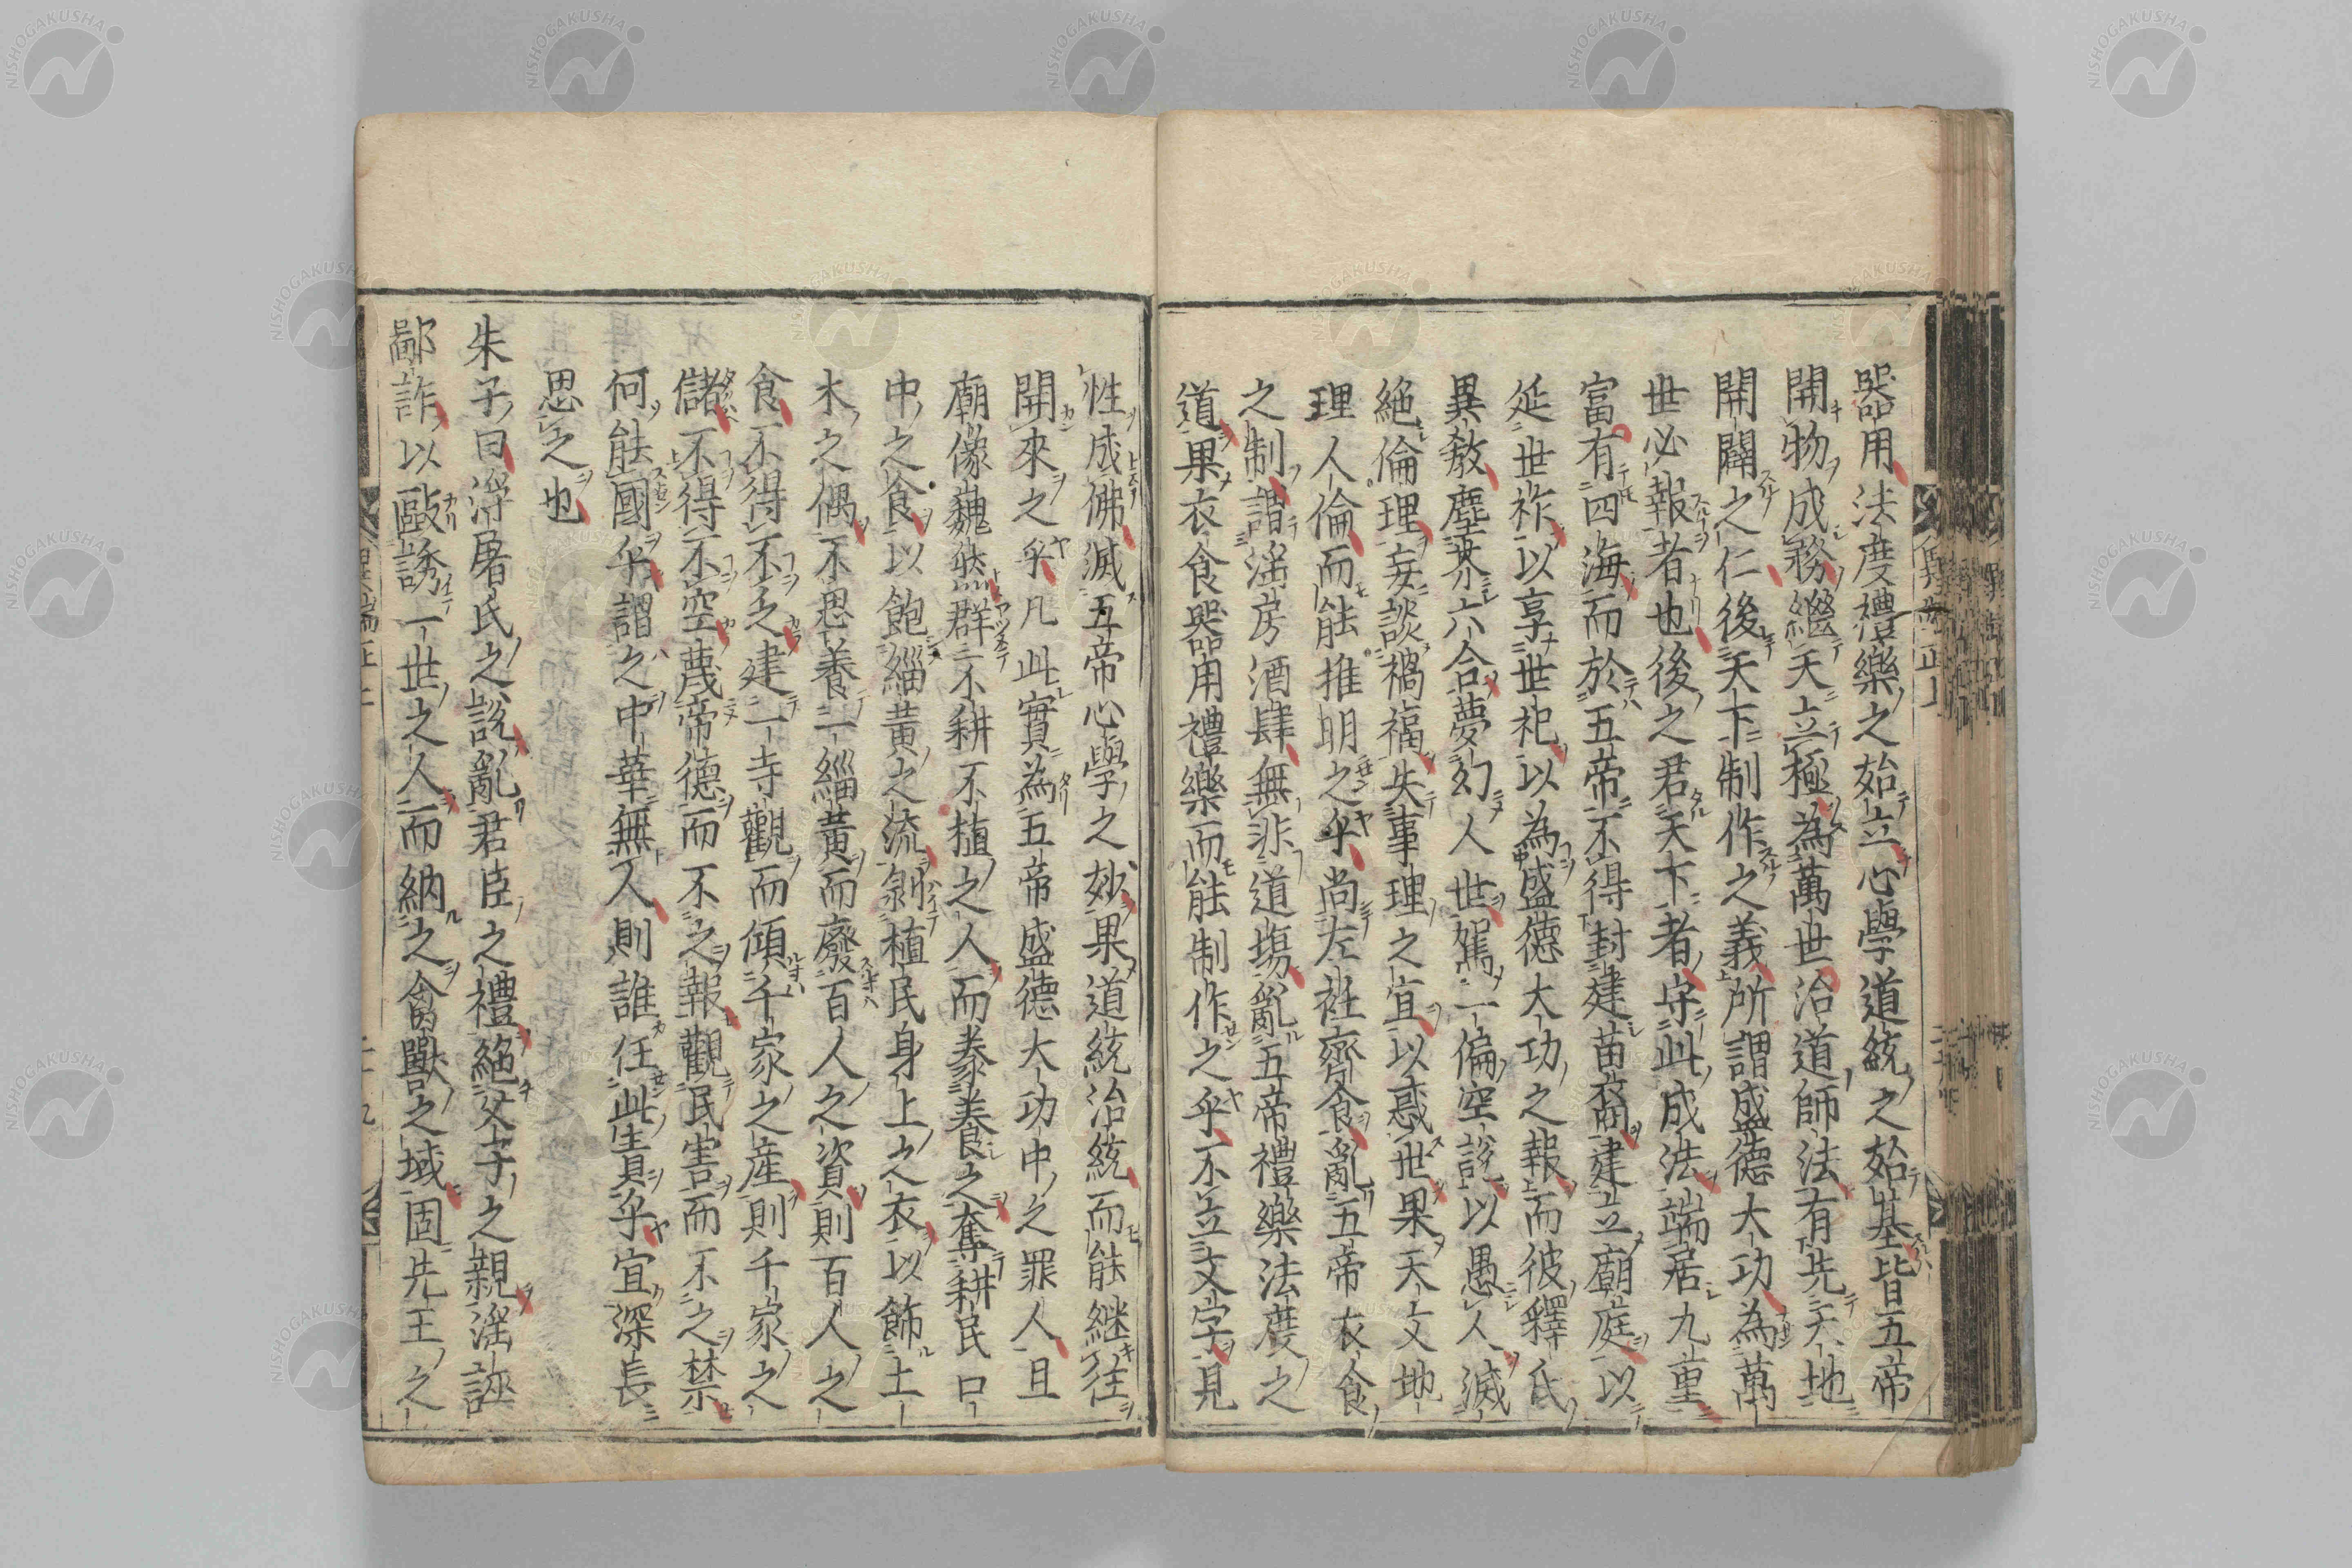 器用法度禮樂之始立心學道統之始基皆五帝
開物成務繼天立極為萬世治道師法有先天地
開闢之仁後天下制作之義所謂盛德大功為萬
世必報者也後之君天下者守此成法端居九重
富有四海而於五帝不得封建苗裔建立廟庭以
延世祚以享世祀以為盛德大功之報而彼釋氏
異教塵芥六合夢幻人世駕一偏空說以愚人滅
絕倫理妄談禍福失事理之宜以惑世果天文地
理人倫而能推明之乎尚左袵齋食亂五帝衣食
之制謂滛房酒肆無非道場亂五帝禮樂法度之
道果衣食器用禮樂而能制作之乎不立文字見
性成佛滅五帝心學之妙果道統治統而能継往
開來之乎凡此實為五帝盛德大功中之罪人且
廟像巍然群不耕不植之人而豢養之奪耕民口
中之食以飽緇黃之流剝植民身上之衣以飾土
木之偶不思養一緇黃而廢百人之資則百人之
食不得不乏建一寺觀而傾千家之産則千家之
儲不得不空蔑帝德而不之報觀民害而不之禁
何能國乎謂之中華無人則誰任此責乎宜深長
思之也
朱子曰浮屠氏之說亂君臣之禮絕父子之親滛誣
鄙詐以敺誘一世之人而納之禽獸之域固先王之
異端正上
異端正上
二十九
NISHOGAKUSHA